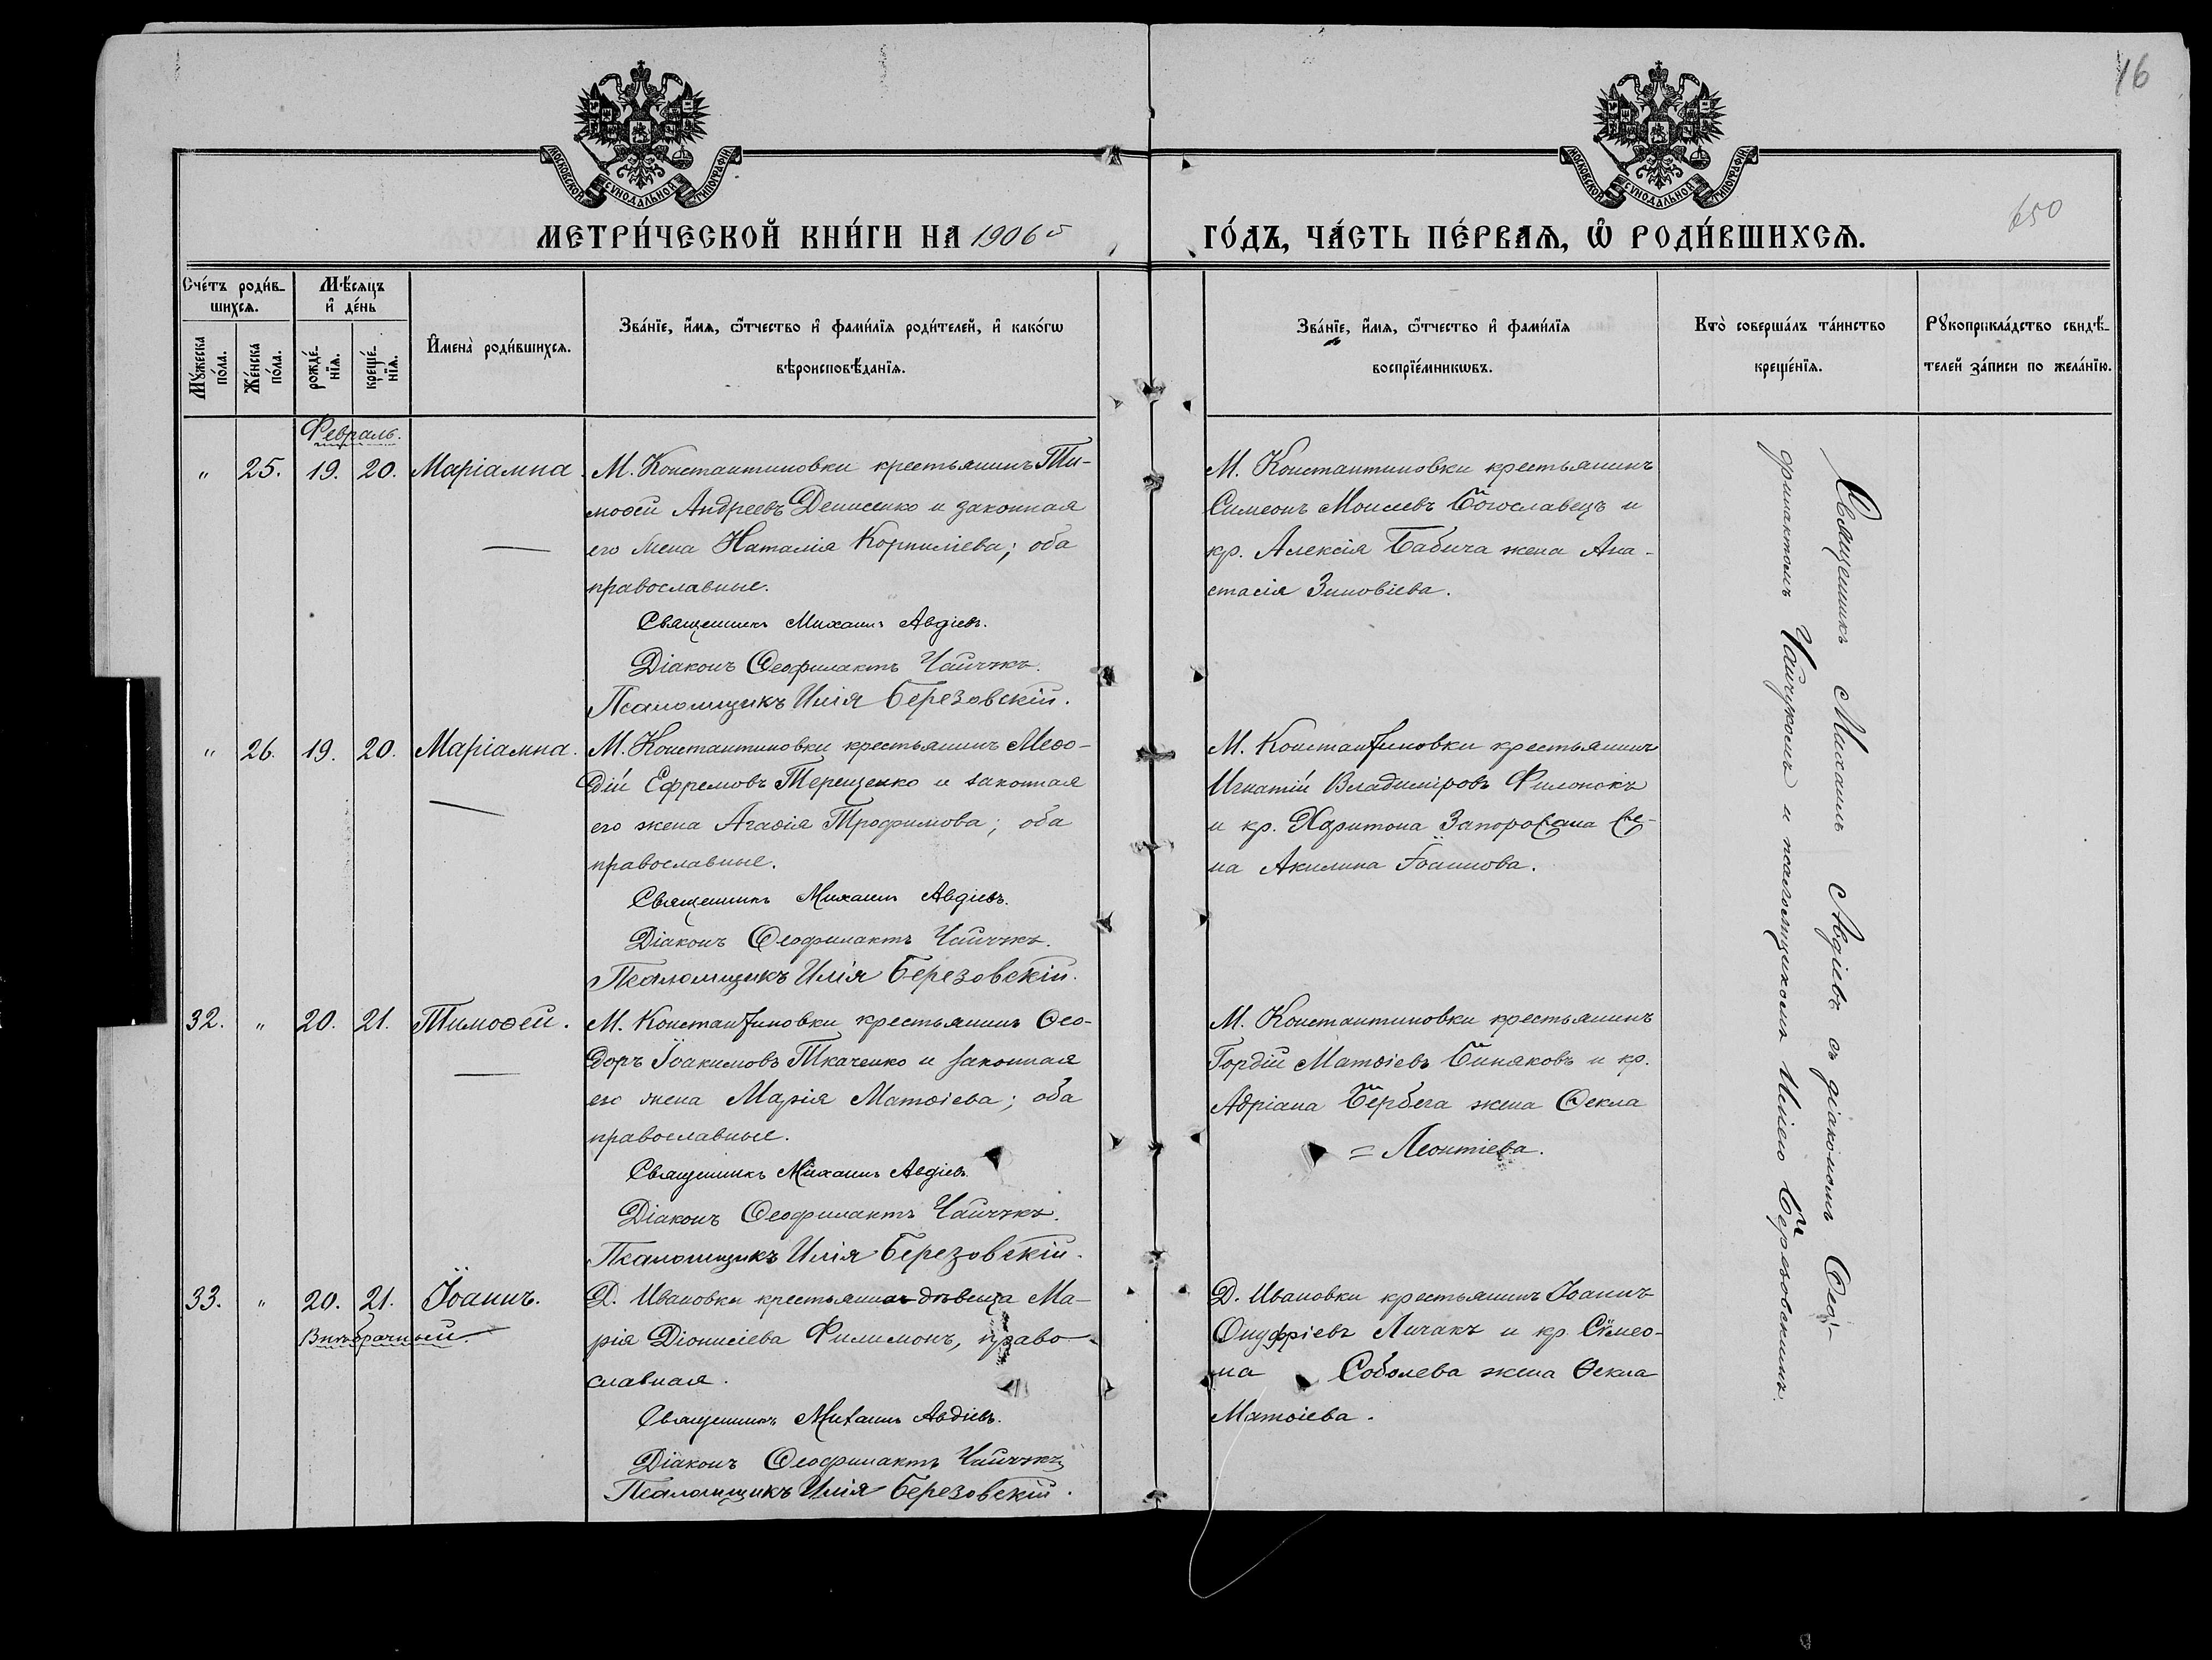 16
650
МОСКОВСКОЙ СѴНОДАЛЬНОЙ ТИПОГРАФІИ
МОСКОВСКОЙ СѴНОДАЛЬНОЙ ТИПОГРАФІИ
МЕТРИ́ЧЕСКОЙ КНИ́ГИ НА 1906й ГО́ДЪ, ЧА́СТЬ ПЕ́РВАѦ, Ѡ҆ РОДИ́ВШИХСѦ.
Сче́тъ роди́в-
шихсѧ.
Мꙋ́жеска по́ла.
Же́нска по́ла.
Мѣ́сѧцъ
и҆ де́нь
рожде́-
нїѧ.
креще́-
нїѧ.
И҆мена̀ роди́вшихсѧ.
Зва́нїе, и҆́мѧ, ѻ҆́тчество и҆ фами́лїѧ роди́телей, и҆ како́гѡ
вѣроисповѣ́данїѧ.
Зва́нїе, и҆́мѧ, ѻ҆́тчество и҆ фами́лїѧ
воспрїе́мникѡвъ.
Кто̀ соверша́лъ та́инство
креще́нїѧ.
Рꙋкоприкла́дство свидѣ́-
телей за́писи по жела́нїю.
Февраль.
" 25. 19. 20. Маріамна.
М. Константиновки крестьянинъ Ти-
моѳей Андреевъ Денисенко и законная
его жена Наталія Корниліева; оба
православные.
Священникъ Михаилъ Авдіевъ.
Діаконъ Ѳеофилактъ Чайчукъ.
Псаломщикъ Илія Березовскій.
М. Константиновки крестьянинъ
Симеонъ Моисеевъ Богославецъ и
кр. Алексія Бабича жена Ана-
стасія Зиновіева.
" 26. 19. 20. Маріамна.
М. Константиновки крестьянинъ Меѳо-
дій Ефремовъ Терещенко и законная
его жена Агаѳія Трофимова; оба
православные.
Священникъ Михаилъ Авдіевъ.
Діаконъ Ѳеофилактъ Чайчукъ.
Псаломщикъ Илія Березовскій.
М. Константиновки крестьянинъ
Игнатій Владиміровъ Филонокъ
и кр. Харитона Запорожана же-
на Акилина Іоаннова.
32. " 20. 21. Тимоѳей.
М. Константиновки крестьянинъ Ѳео-
доръ Іоакимовъ Ткаченко и законная
его жена Марія Матѳіева; оба
православные.
Священникъ Михаилъ Авдіевъ.
Діаконъ Ѳеофилактъ Чайчукъ.
Псаломщикъ Илія Березовскій.
М. Константиновки крестьянинъ
Гордій Матѳіевъ Биняковъ и кр.
Адріана Бербега жена Ѳекла
= Леонтіева.
33. " 20. 21. Іоаннъ.
Внѣбрачный.
Д. Ивановки крестьянка дѣвица Ма-
рія Діонисіева Филимонъ, право-
славная.
Священникъ Михаилъ Авдіевъ.
Діаконъ Ѳеофилактъ Чайчукъ
Псаломщикъ Илія Березовскій.
Д. Ивановки крестьянинъ Іоаннъ
Онуфріевъ Личакъ и кр. Симео-
на Соболева жена Ѳекла
Матѳіева.
Священникъ Михаилъ Авдіевъ съ діакономъ Ѳео-
филактомъ Чайчукомъ и псаломщикомъ Иліею Березовскимъ.